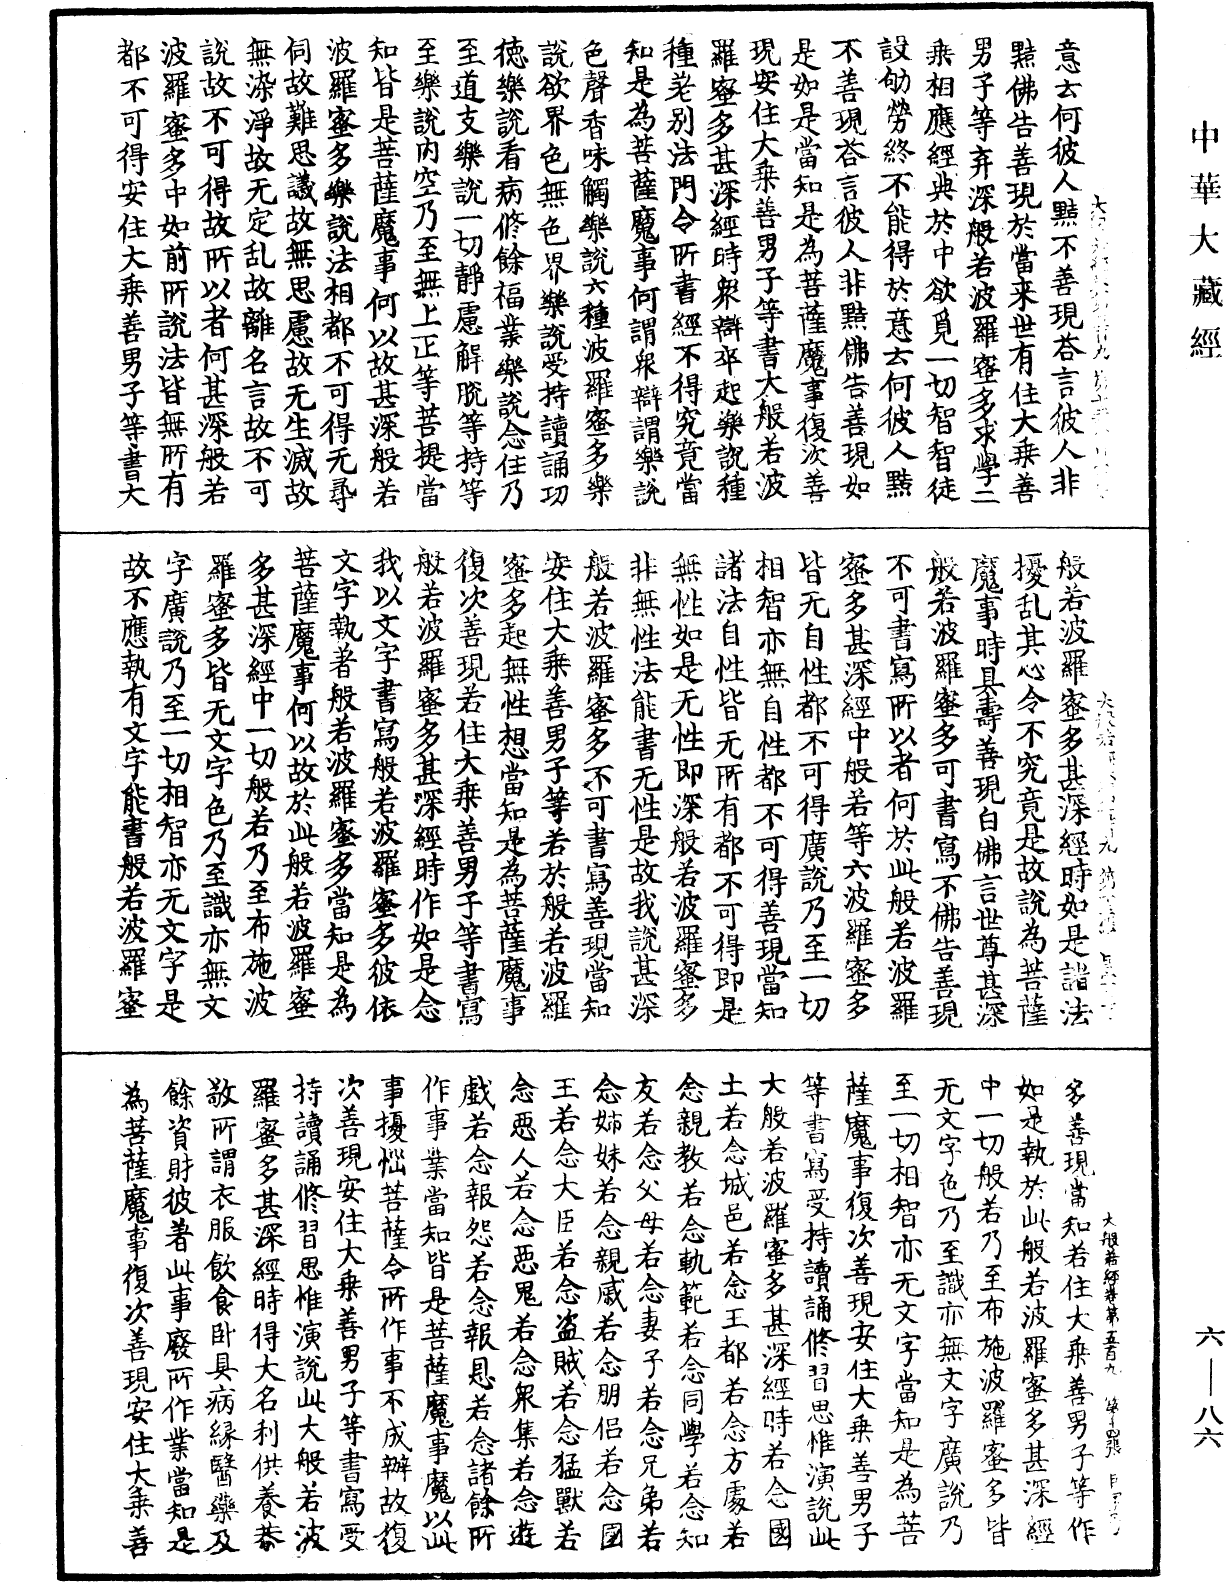 中華大藏經
意云何彼人黠不善現荅言彼人非
黠佛告善現於當来世有住大乘善
男子等弃深般若波羅蜜多求學二
乘相應經典於中欲覓一切智智徒
設劬勞終不能得於意云何彼人黠
不善現荅言彼人非黠佛告善現如
是如是當知是為菩薩魔事復次善
現安住大乘善男子等書大般若波
羅蜜多甚深經時衆辯卒起樂說種
種差別法門令所書經不得究竟當
知是為菩薩魔事何謂衆辯謂樂說
色聲香味觸樂說六種波羅蜜多樂
說欲界色無色界樂說受持讀誦功
徳樂說看病修餘福業樂說念住乃
至道支樂說一切靜慮解脫等持等
至樂說內空乃至無上正等菩提當
知皆是菩薩魔事何以故甚深般若
波羅蜜多樂說法相都不可得无尋
伺故難思議故無思慮故无生滅故
無染淨故无定乱故離名言故不可
說故不可得故所以者何甚深般若
波羅蜜多中如前所說法皆無所有
都不可得安住大乘善男子等書大
般若波羅蜜多甚深經時如是諸法
擾乱其心令不究竟是故說為菩薩
魔事時具壽善現白佛言世尊甚深
般若波羅蜜多可書寫不佛告善現
不可書寫所以者何於此般若波羅
蜜多甚深經中般若等六波羅蜜多
皆无自性都不可得廣說乃至一切
相智亦無自性都不可得善現當知
諸法自性皆无所有都不可得即是
無性如是无性即深般若波羅蜜多
非無性法能書无性是故我說甚深
般若波羅蜜多不可書寫善現當知
安住大乘善男子等若於般若波羅
蜜多起無性想當知是為菩薩魔事
復次善現若住大乘善男子等書寫
般若波羅蜜多甚深經時作如是念
我以文字書寫般若波羅蜜多彼依
文字執著般若波羅蜜多當知是為
菩薩魔事何以故於此般若波羅蜜
多甚深經中一切般若乃至布施波
羅蜜多皆无文字色乃至識亦無文
字廣說乃至一切相智亦无文字是
故不應執有文字能書般若波羅蜜
大般若經卷第五百九
多善現當知若住大乘善男子等作
如是執於此般若波羅蜜多甚深經
中一切般若乃至布施波羅蜜多皆
无文字色乃至識亦無文字廣說乃
至一切相智亦无文字當知是為菩
薩魔事復次善現安住大乘善男子
等書寫受持讀誦修習思惟演說此
大般若波羅蜜多甚深經時若念國
土若念城邑若念王都若念方處若
念親教若念軌範若念同學若念知
友若念父母若念妻子若念兄弟若
念姊妹若念親戚若念朋侶若念國
王若念大臣若念盗賊若念猛獸若
念惡人若念惡鬼若念衆集若念遊
戲若念報怨若念報恩若念諸餘所
作事業當知皆是菩薩魔事魔以此
事擾惱菩薩令所作事不成辦故復
次善現安住大乘善男子等書寫受
持讀誦修習思惟演說此大般若波
羅蜜多甚深經時得大名利供養恭
敬所謂衣服飲食卧具病緣醫藥及
餘資財彼著此事廢所作業當知是
為菩薩魔事復次善現安住大乘善
六—八六